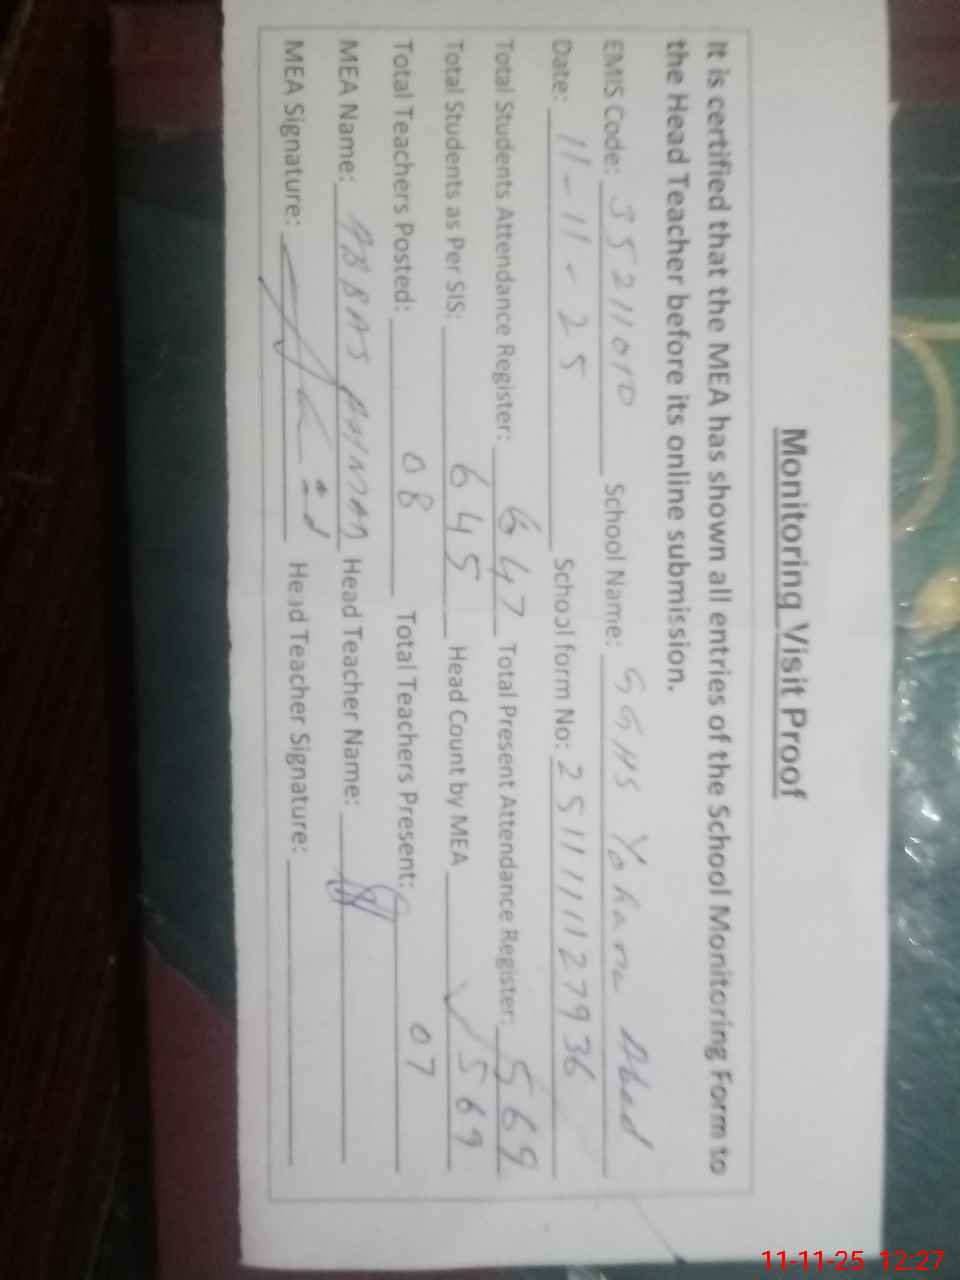 Monitoring Visit Proof
It is certified that the MEA has shown all entries of the School Monitoring Form to
the Head Teacher before its online submission.
EMIS Code: 35211010 School Name: GGHS Yohana Abad
Date: 11-11-25 School form No: 2511111127936
Total Students Attendance Register: 647 Total Present Attendance Register: 569
Total Students as Per SIS: 645 Head Count by MEA 569
Total Teachers Posted: 08 Total Teachers Present: 07
MEA Name: ABBAS Head Teacher Name:
MEA Signature: Head Teacher Signature:
11-11-25 12:27